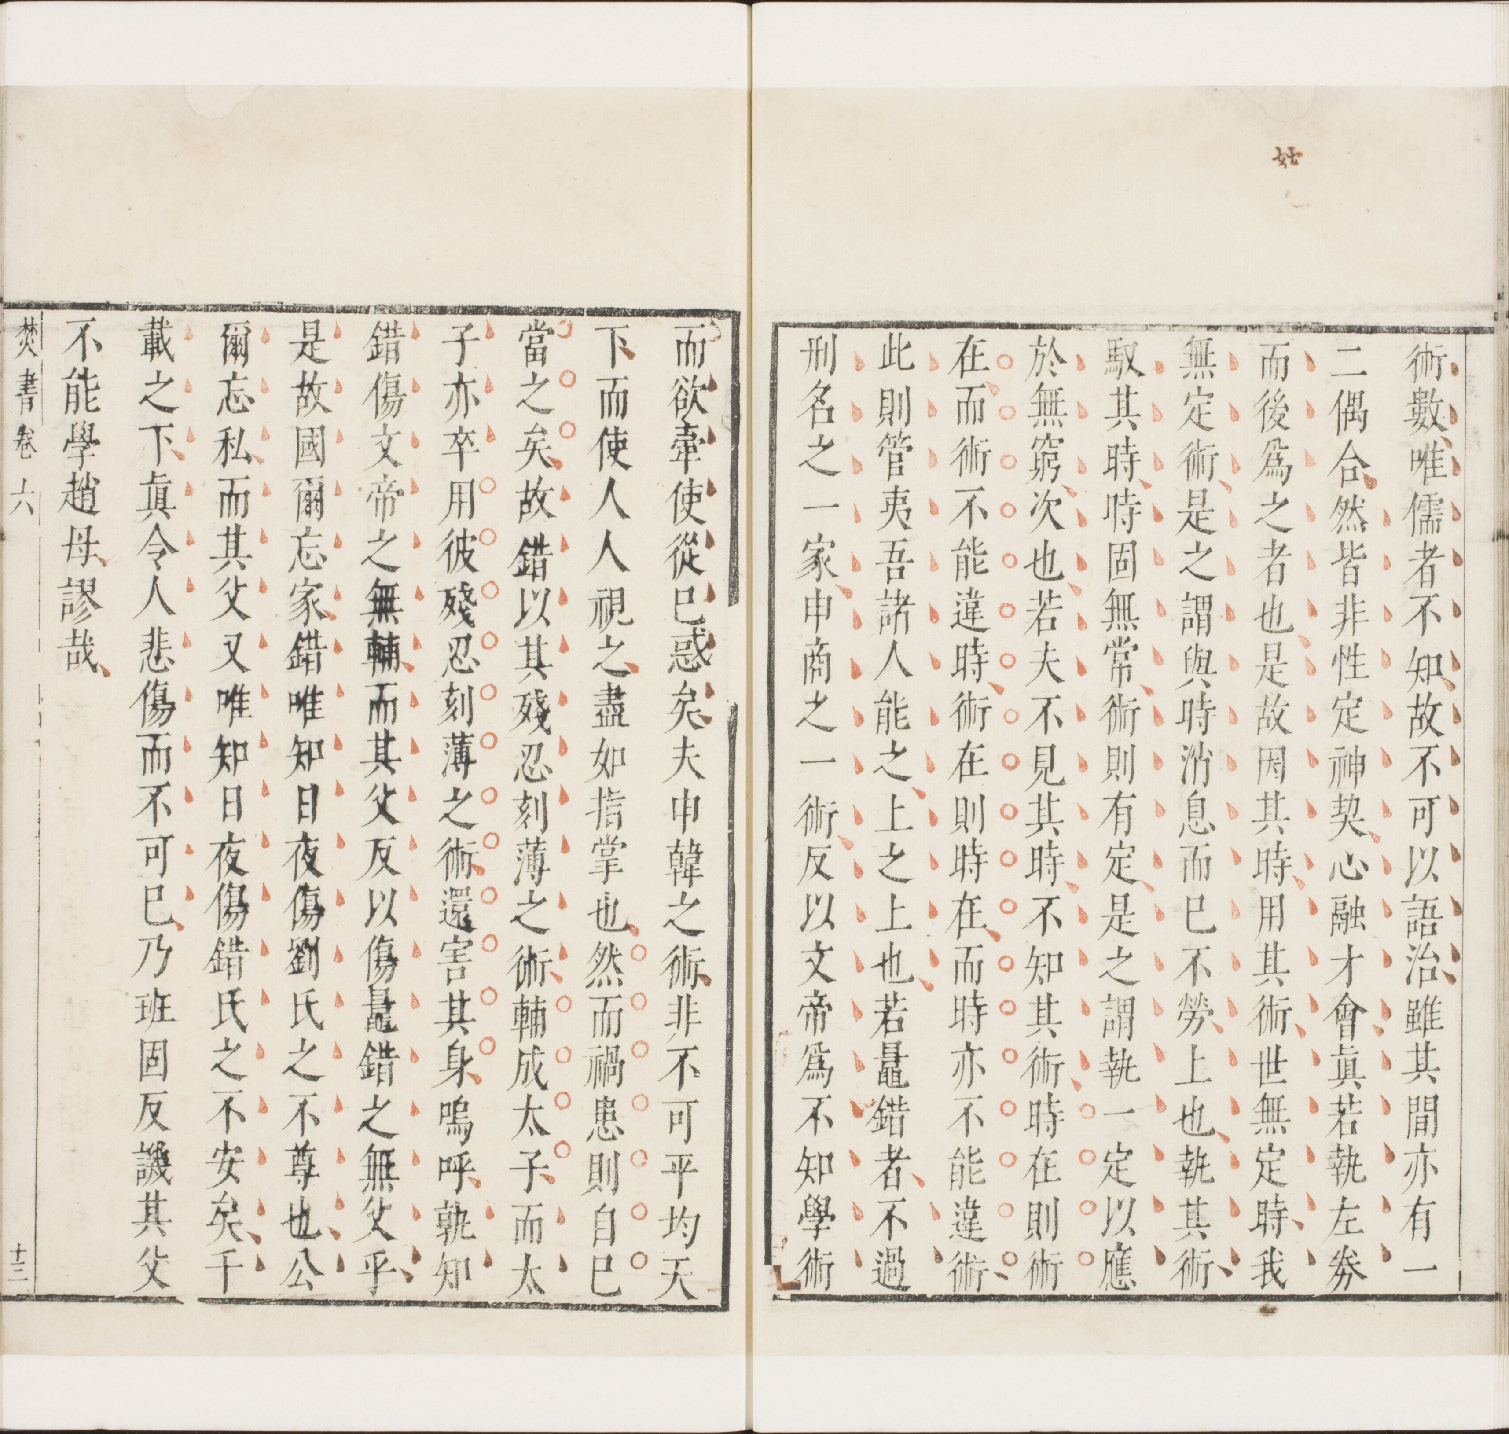 妬
術數唯儒者不知故不可以語治雖其間亦有一
二偶合然皆非性定神契心融才會眞若執左券
而後爲之者也是故因其時用其術世無定時我
無定術是之謂與時消息而已不勞上也執其術
馭其時時固無常術則有定是之謂執一定以應
於無窮次也若夫不見其時不知其術時在則術
在而術不能違時術在則時在而時亦不能違術
此則管夷吾諸人能之上之上也若鼂錯者不過
刑名之一家申商之一術反以文帝爲不知學術
而欲牽使從已惑矣夫申韓之術非不可平均天
下而使人人視之盡如指掌也然而禍患則自已
當之矣故錯以其殘忍刻薄之術輔成太子而太
子亦卒用彼殘忍刻薄之術還害其身嗚呼孰知
錯傷文帝之無輔而其父反以傷鼂錯之無父乎
是故國爾忘家錯唯知日夜傷劉氏之不尊也公
爾忘私而其父又唯知日夜傷錯氏之不安矣千
載之下眞令人悲傷而不可已乃班固反譏其父
不能學趙母謬哉
焚書卷六
十三